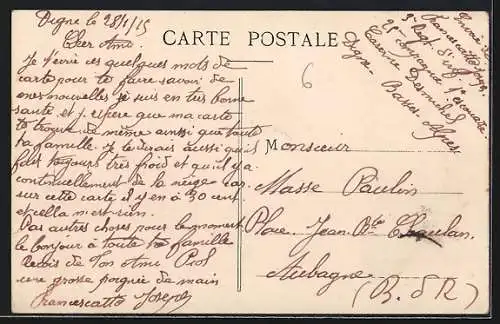 Digne le 28/1/15
Cher Ami
Je t'écrie ces quelques mots de
carte pour te faire savoir de
mes nouvelles je suis en tres bonne
santé et j'espere que ma carte
te trouve de même aussi que toute
ta famille. Je te dirais aussi qu'il
fait toujours très froid et qu'il y a
continuellement de la neige car
sur cette carte il y en a 30 cent
et cella n'est rien.
Pas autres choses pour le moment
le bonjour à toute ta famille
Recois de Ton Ami
une grosse poignée de main
Francescatto Joseph
CARTE POSTALE
6
Francescatto Josph
3e Regt d'inf
25e compagnie 1e escouade
Caserne Desmichel
Digne. Basses. Alpes.
Monsieur
Masse Paulin
Place. Jean Bte
Aubagne
(B. d R)